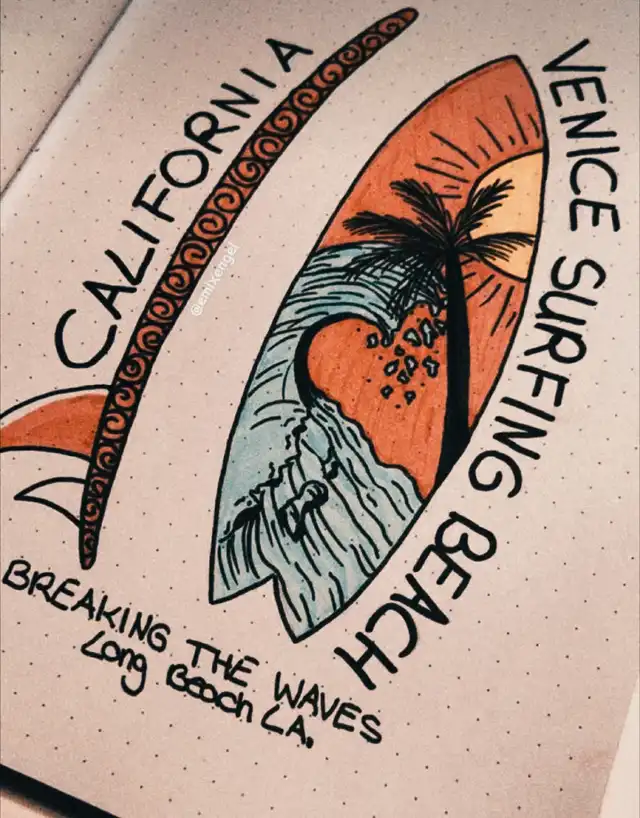 CALIFORNIA
VENICE SURFING BEACH
@emixengel
BREAKING THE WAVES
Long Beach LA.